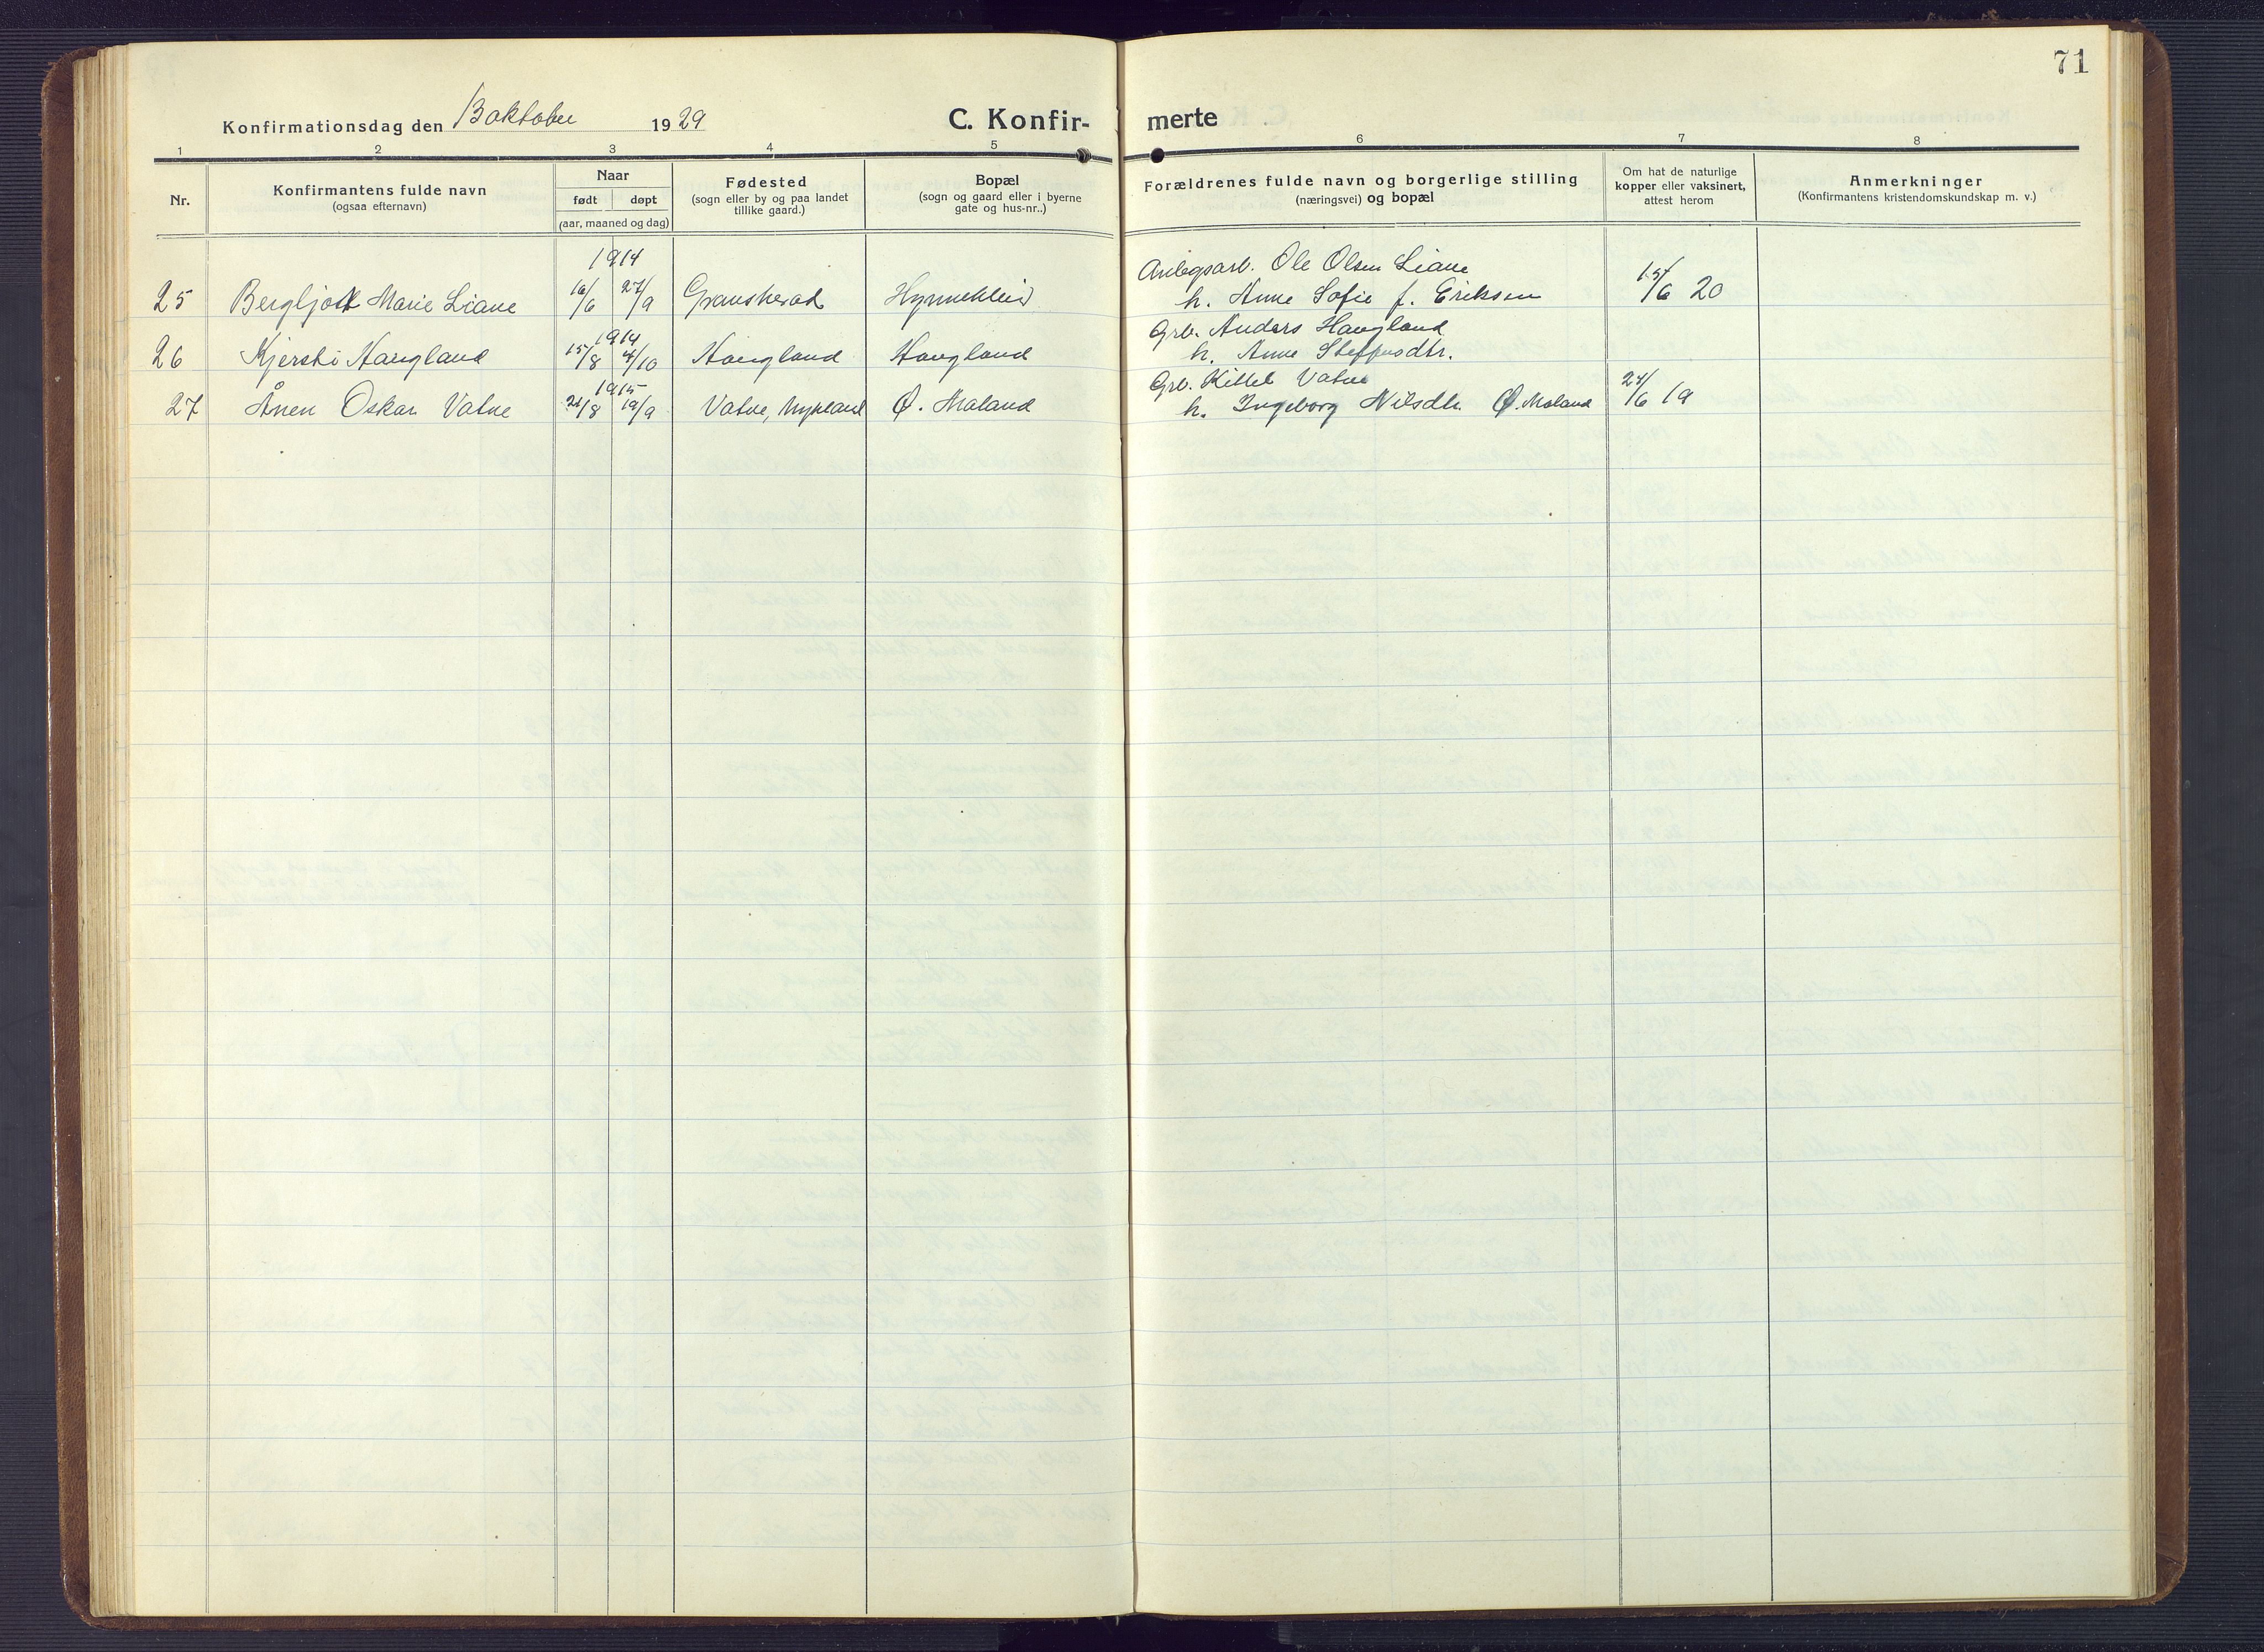 71
Konfirmationsdag den 13 oktober 1929
C. Konfir- merte
1 2 3 4 5 6 7 8
Nr.
Konfirmantens fulde navn
(ogsaa efternavn)
Naar
født døpt
(aar, maaned og dag)
Fødested
(sogn eller by og paa landet
tillike gaard.)
Bopæl
(sogn og gaard eller i byerne
gate og hus-nr..)
Forældrenes fulde navn og borgerlige stilling
(næringsvei) og bopæl
Om hat de naturlige
kopper eller vaksinert,
attest herom
Anmerkninger
(Konfirmantens kristendomskundskap m. v.)
1914
Anlegsarb. Ole Olsen Liane
25 Bergljot Marie Liane 16/6 27/9 Gransherad h. Anne Sofie f. Eriksen 15/6 20
1914
Grb. Anders Haugland
26 Kjersti Haugland 15/8 4/10 Haugland Haugland h. Anne Steffensdtr.
1915
Grb. Kittel Vatne
27 Ånen Oskar Vatne 21/8 19/9 Vatne, Mykland Ø. Maland h. Ingeborg Nilsdtr. Ø. Maland 24/6 19